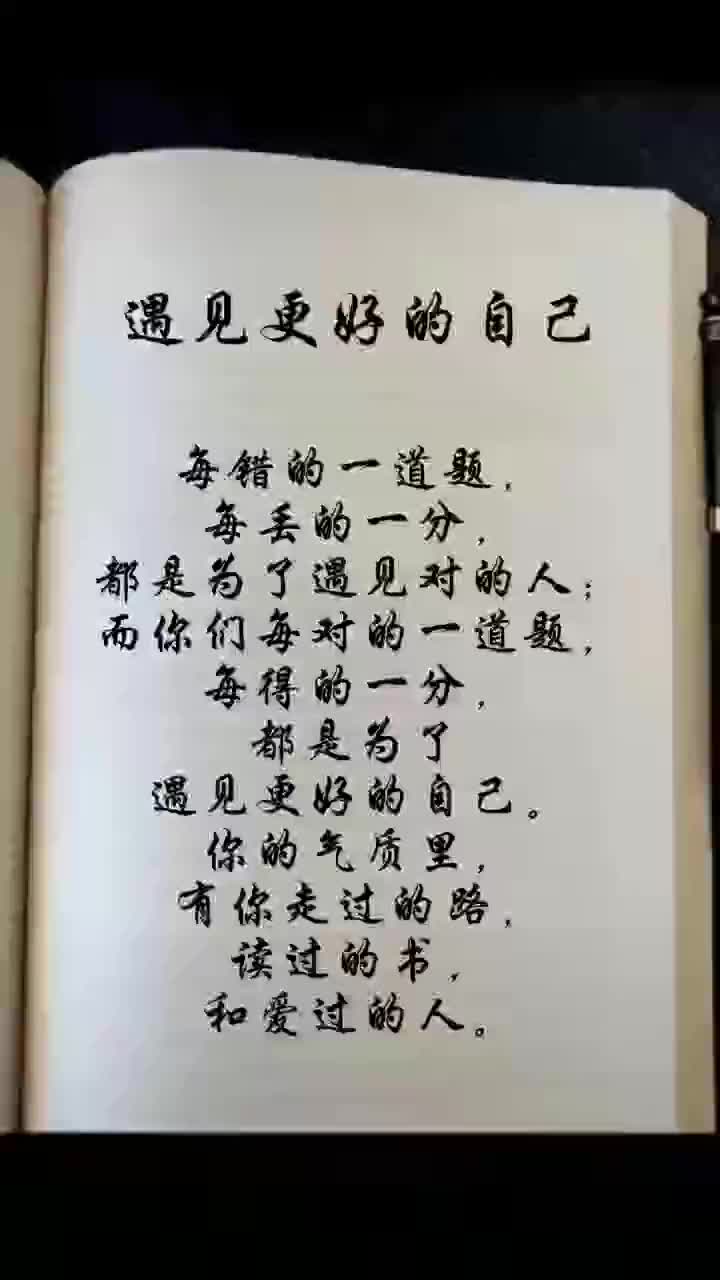 遇见更好的自己
每错的一道题，
每丢的一分，
都是为了遇见对的人；
而你们每对的一道题，
每得的一分，
都是为了
遇见更好的自己。
你的气质里，
有你走过的路，
读过的书，
和爱过的人。